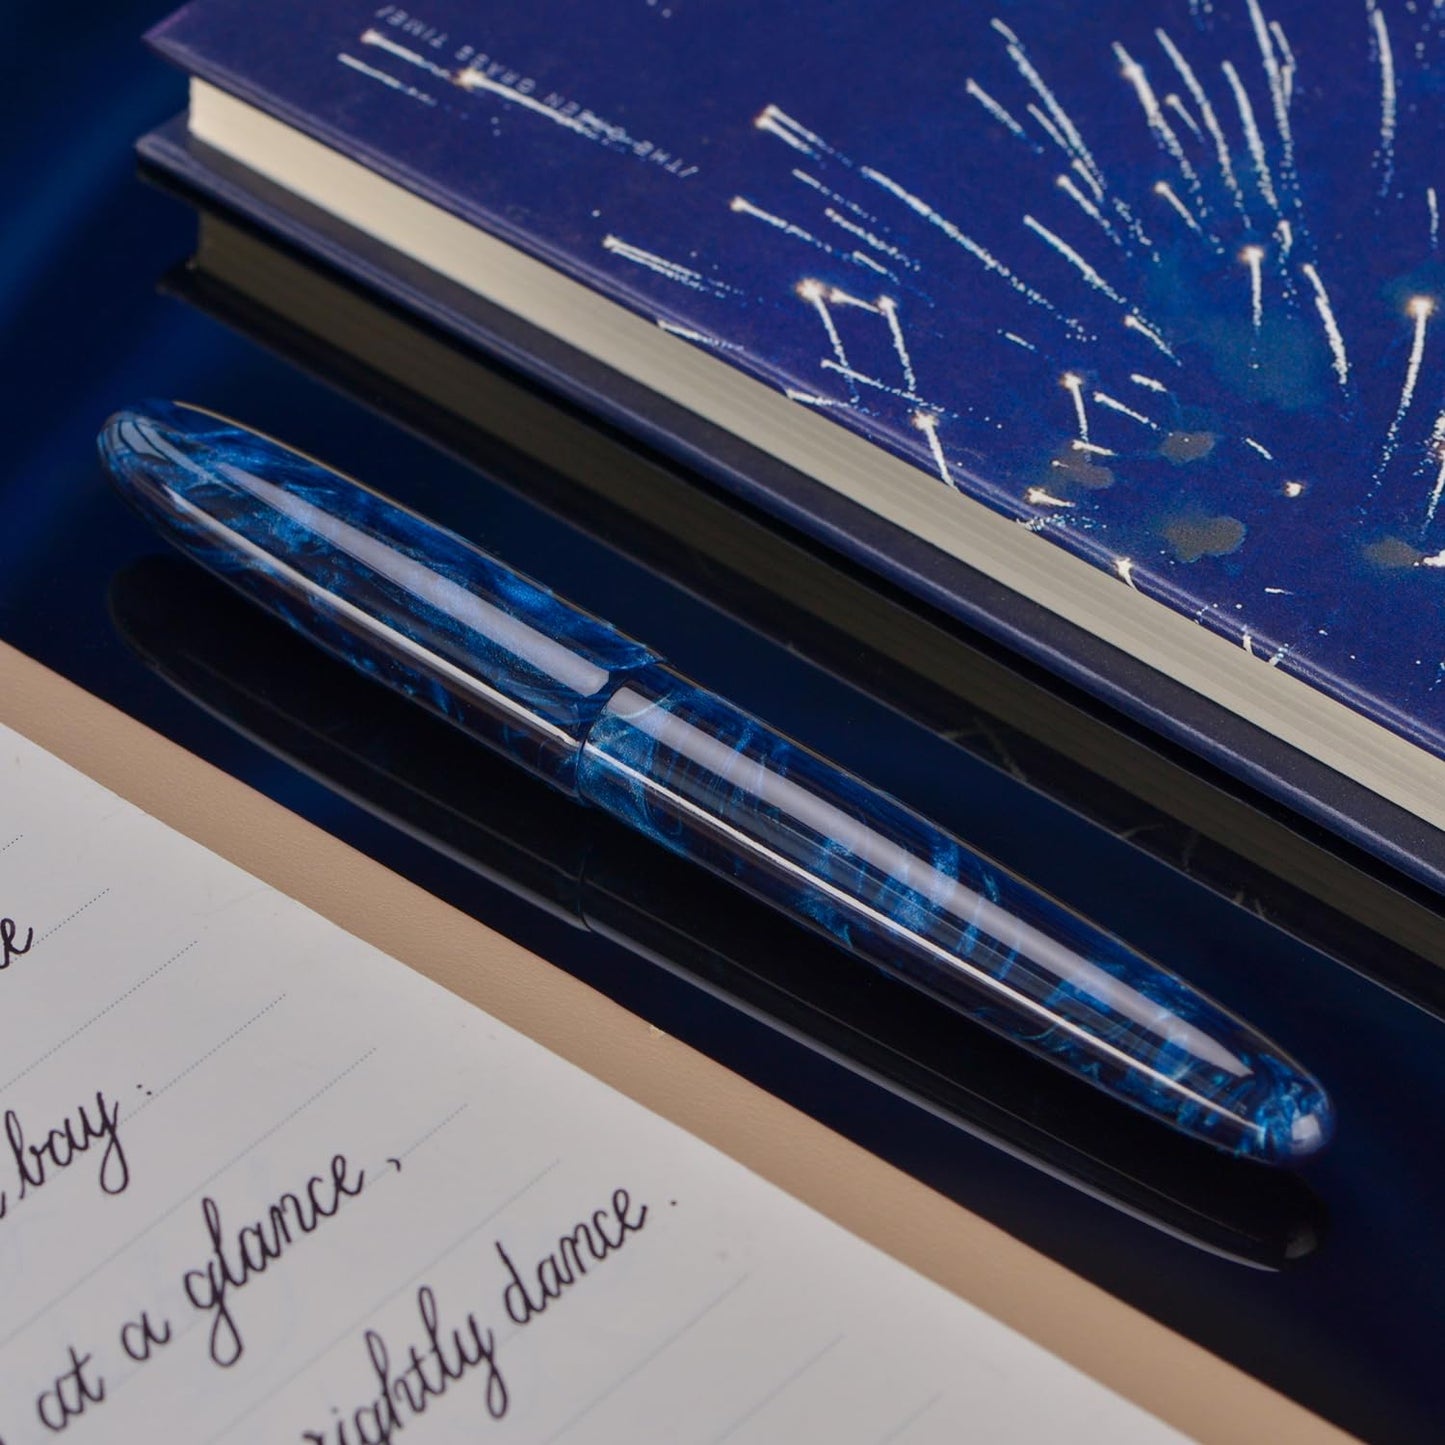 /THE GREEN GRASS TIME/
bay:
at a glance,
rightly dance.